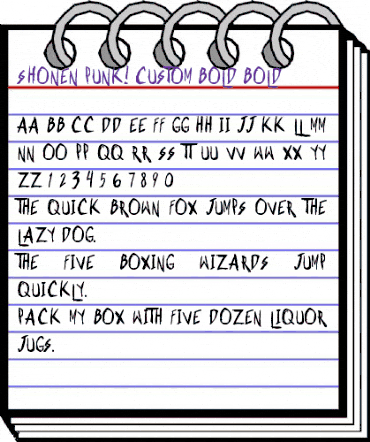 SHONEN PUNK! CUSTOM BOLD BOLD
AA BB CC DD EE FF GG HH II JJ KK LL MM
NN OO PP QQ RR SS TT UU VV WW XX YY
ZZ 1 2 3 4 5 6 7 8 9 0
THE QUICK BROWN FOX JUMPS OVER THE
LAZY DOG.
THE FIVE BOXING WIZARDS JUMP
QUICKLY.
PACK MY BOX WITH FIVE DOZEN LIQUOR
JUGS.